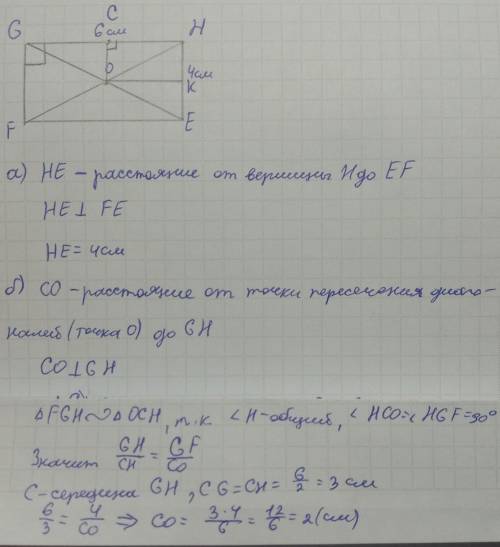 C
G 6см H
O
4см
K
F E
а) HE – расстояние от вершины H до EF
HE ⊥ FE
HE = 4см
б) CO – расстояние от точки пересечения диаго-
налей (точка O) до GH
CO ⊥ GH
△FGH ∾ △OCH, т.к. ∠H – общий, ∠HCO = ∠HGF = 90°
Значит GH/CH = GF/CO
C – середина GH, CG = CH = 6/2 = 3 см
6/3 = 4/CO ⇒ CO = 3·4/6 = 12/6 = 2 (см)